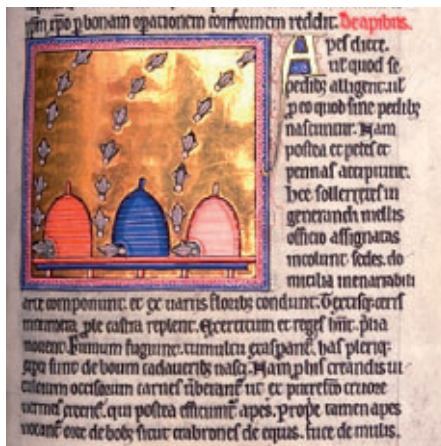 ipsi xpo p bonam opationem conformem reddit. De apibus.
Apes dicte.
ut quod se
pedibȝ alligent. ut
p eo quod sine pedibȝ
nascuntur. Nam
postea et pedes et
pennas accipiunt.
hee sollertes in
generandi mellis
officio assignatas
incolunt sedes. do
micilia inenarrabili
arte componunt. et ex uariis floribȝ condunt. Textisqȝ ceris
innumera ple castra replent. Exercitum et reges hnt. plia
mouent. Fumum fugiunt. tumultu exaspant. has pleriqȝ
expti sunt de boum cadaueribȝ nasci. Nam phis creandis ui
tulorum occisorum carnes uberant ut ex putrefco cruore
uermes creent. qui postea efficiunt apes. Prope tamen apes
uocant orte de bobȝ sicut crabrones de equis. fuci de mulis.